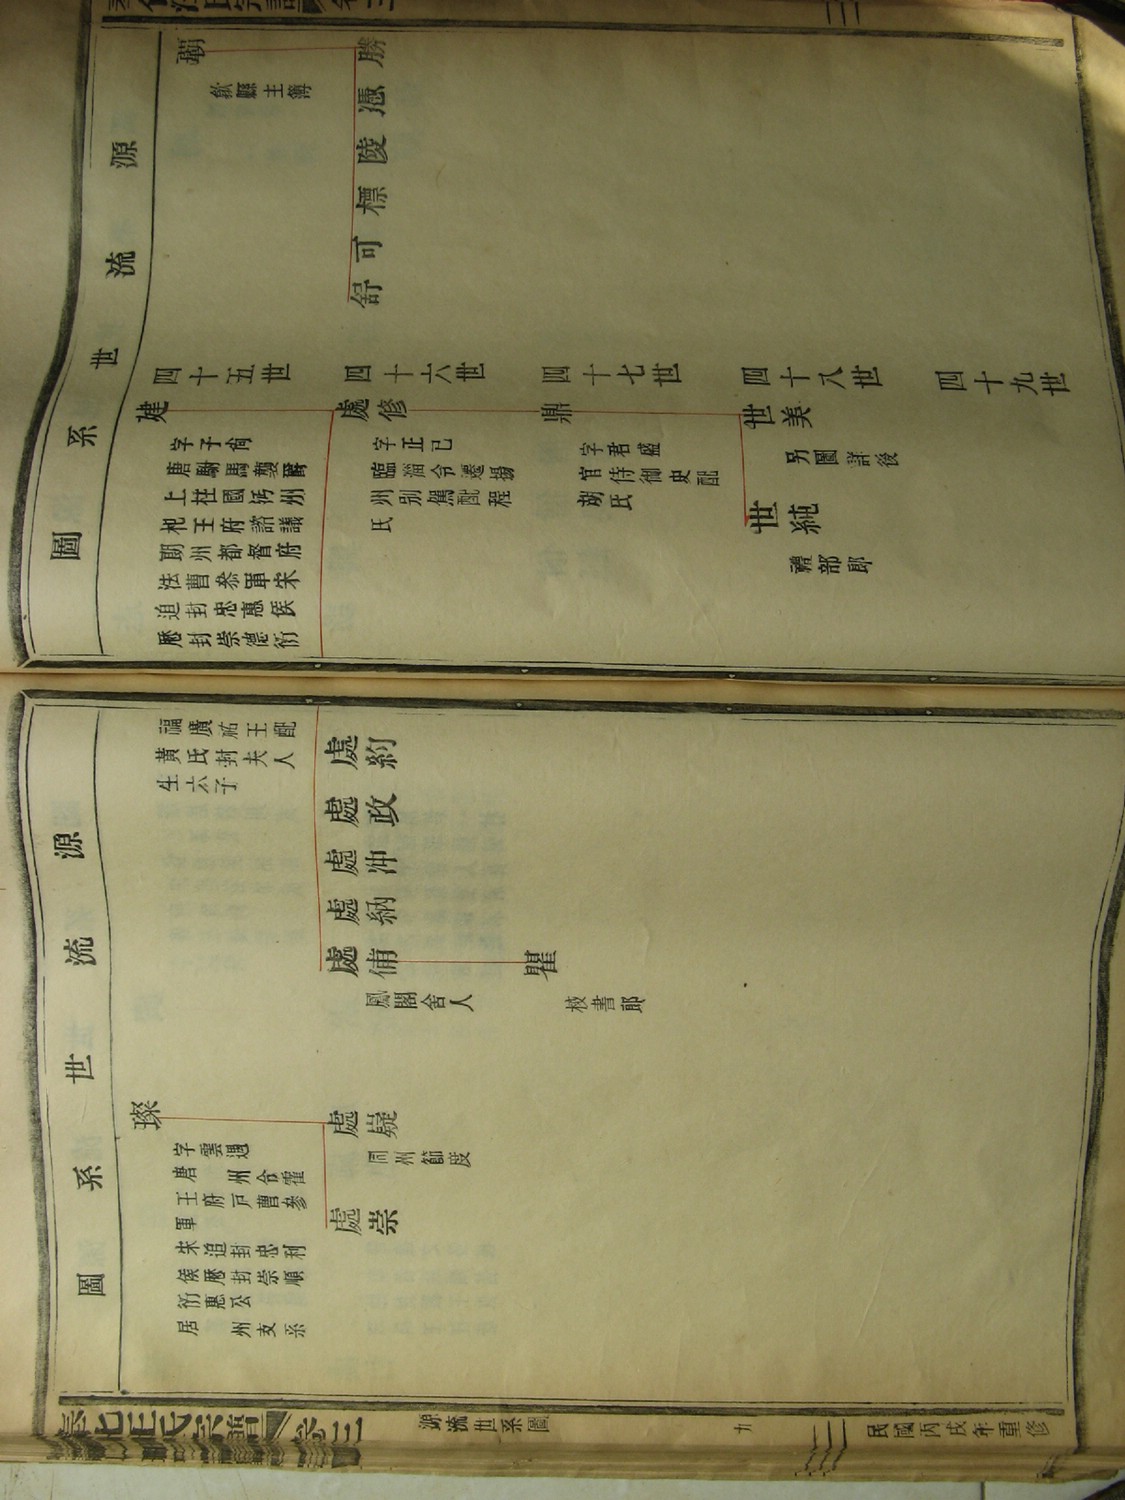 源流世系圖
覇
歙縣主簿
勝
憑
陵
標
可
舒
四十五世
四十六世
四十七世
四十八世
四十九世
建
字子尙
唐駙馬襲爵
上柱國沔州
杞王府諮議
朗州都督府
法曹參軍宋
追封忠惠侯
歷封崇德衍
處修
字正已
臨淄令遷揚
州别駕配程
氏
鼎
字君盛
官侍御史配
胡氏
世美
另圖詳後
世純
禮部郎
源流世系圖
福廣祐王配
黃氏封夫人
生六子
處約
處政
處沖
處納
處俌
鳳閣舍人
瞿
校書郎
璨
字雲遇
唐 州令霍
王府戶曹參
軍
宋追封忠利
侯歷封崇順
衍惠公
居 州支系
處嶷
同州節度
處崇
氏宗譜 卷三
源流世系圖
九
民國丙戌年重修